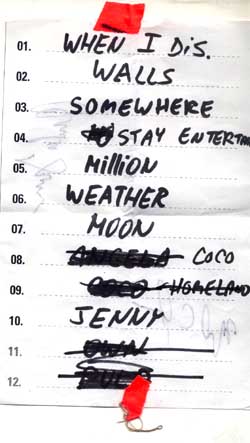 01. WHEN I DIS.
02. WALLS
03. SOMEWHERE
04. STAY ENTERTA
05. MILLION
06. WEATHER
07. MOON
08. ANGELA COCO
09. COCO HOMELAND
10. JENNY
11. OWN
12.